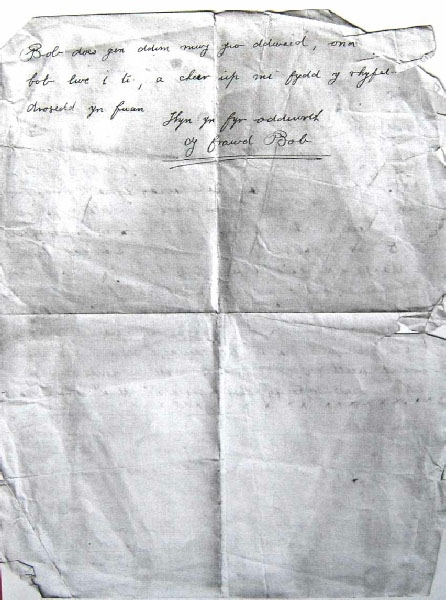 Bob does gen ddim mwy iw ddweud, ond
bob lwc i ti, a cheer up mi fydd y rhyfel
drosodd yn fuan
Hyn yn fyr oddiwrth
dy frawd Bob